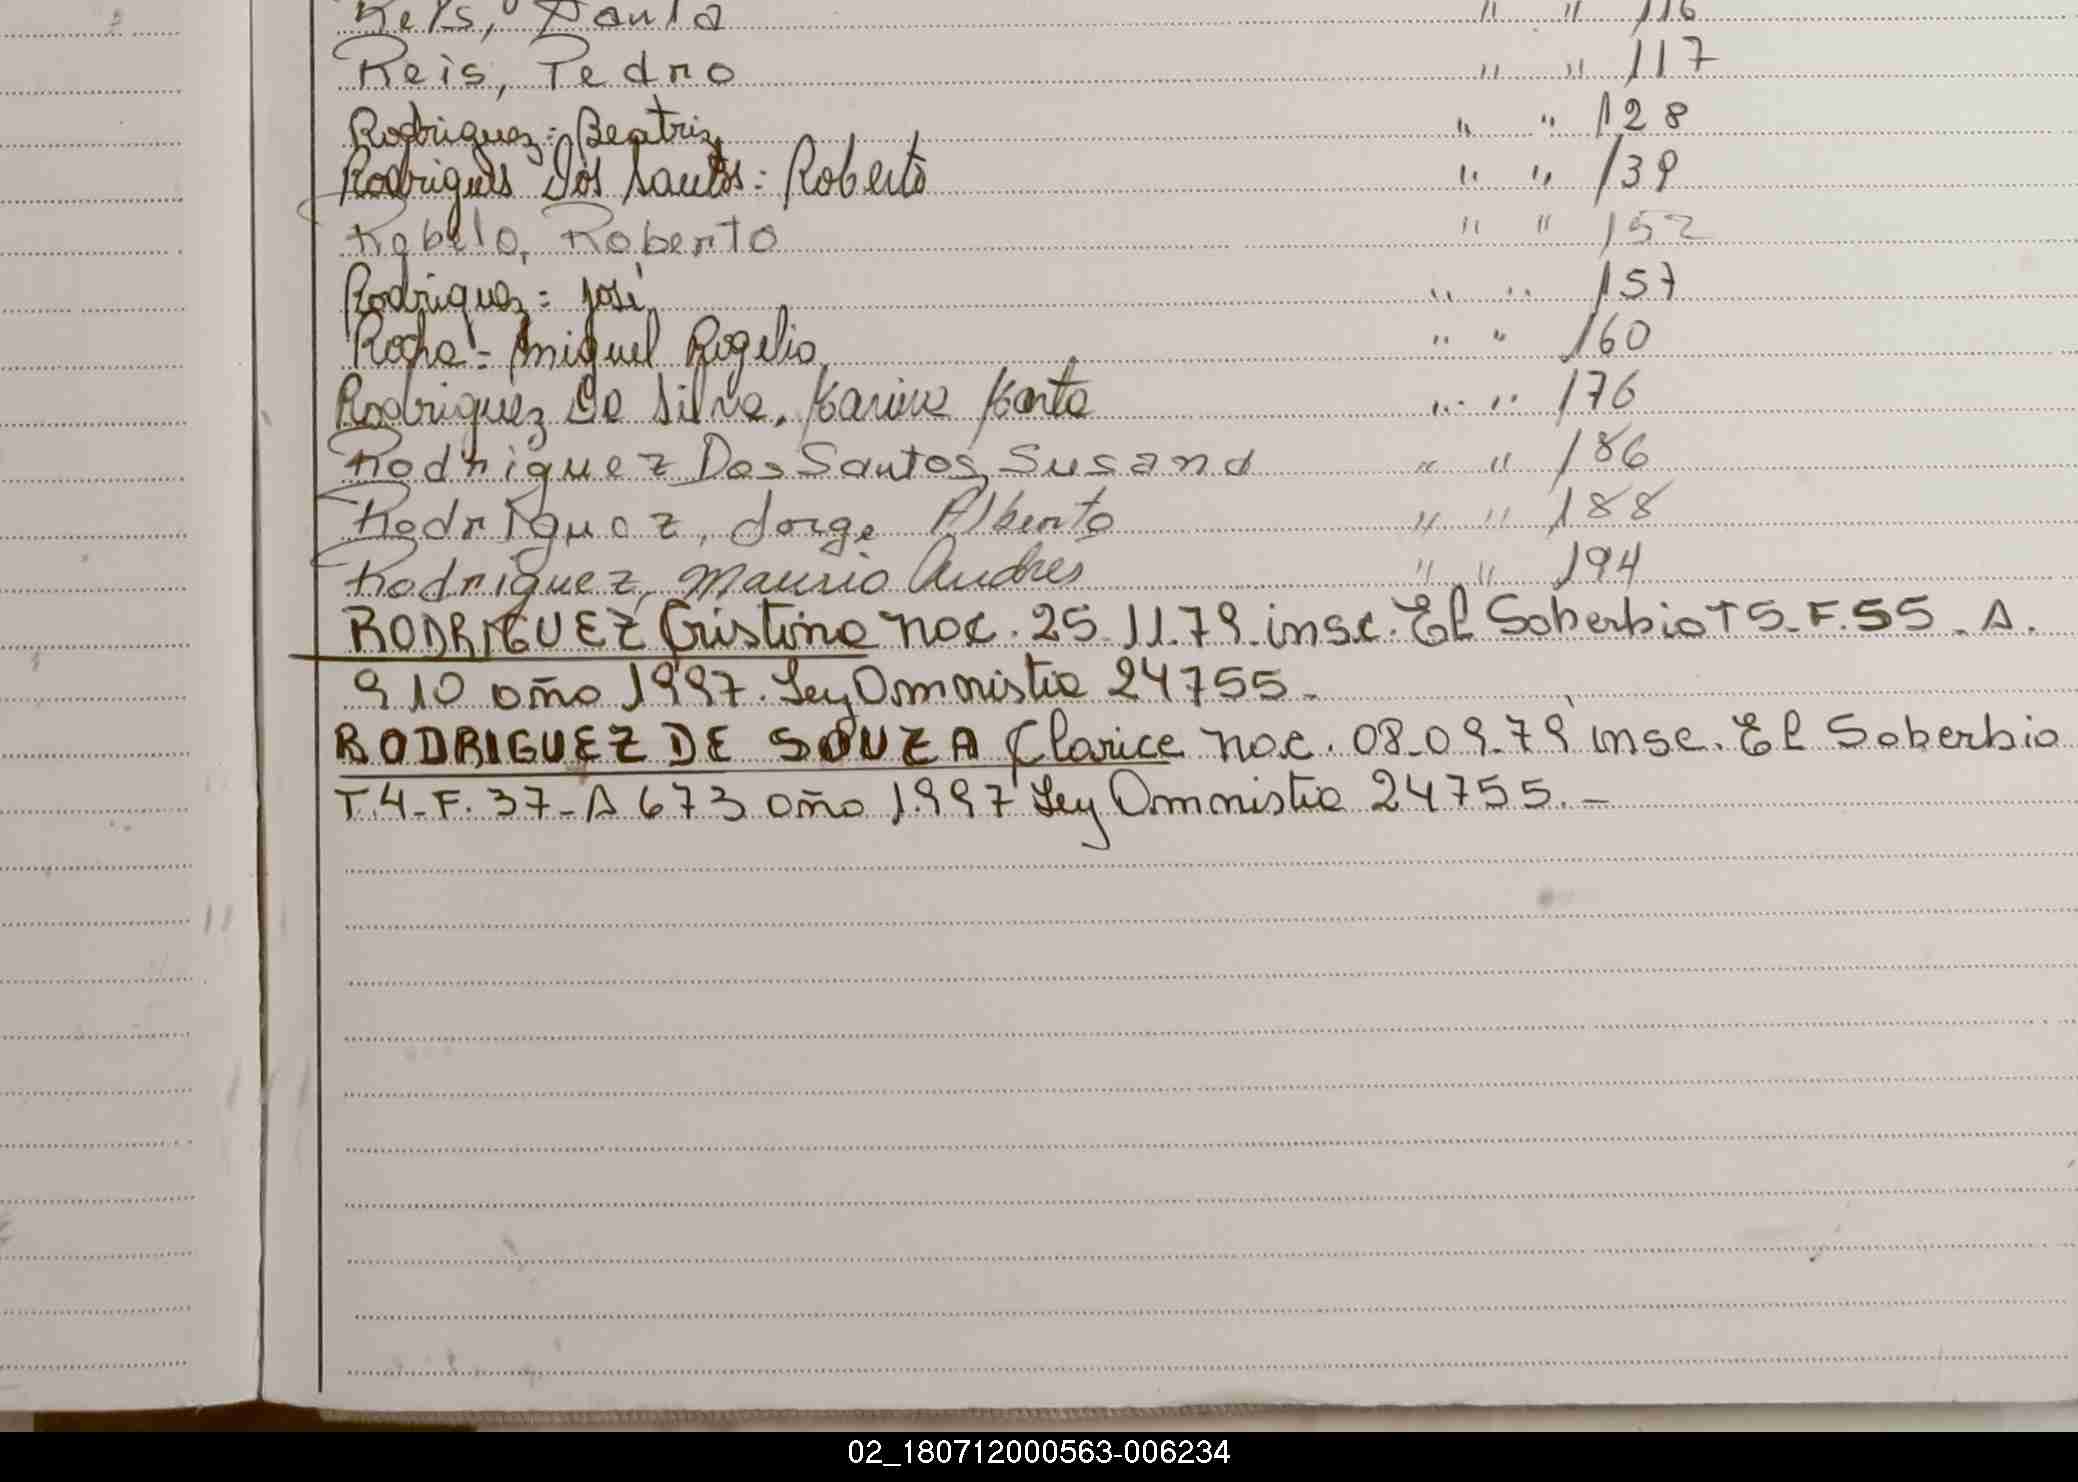 Reis, Paula " " 116
Reis, Pedro " " 117
Rodriguez: Beatriz " " 128
Rodrigues Dos Santos: Roberto " " 139
Rabelo, Roberto " " 152
Rodriguez: José " " 157
Rocha: Miguel Rogelio " " 160
Rodriguez Da Silva, Karina Marta " " 176
Rodriguez Dos Santos, Susana " " 186
Rodriguez, Jorge Alberto " " 188
Rodriguez, Mauricio Andres " " 194
RODRIGUEZ Cristina nac. 25.11.79 insc. El Soberbio T5-F.55-A.
910 año 1997. Ley Ammistia 24755-
RODRIGUEZ DE SOUZA Clarice nac. 08-09-79 insc. El Soberbio
T.4-F.37-A 673 año 1997 Ley Ammistia 24755.-
02_180712000563-006234